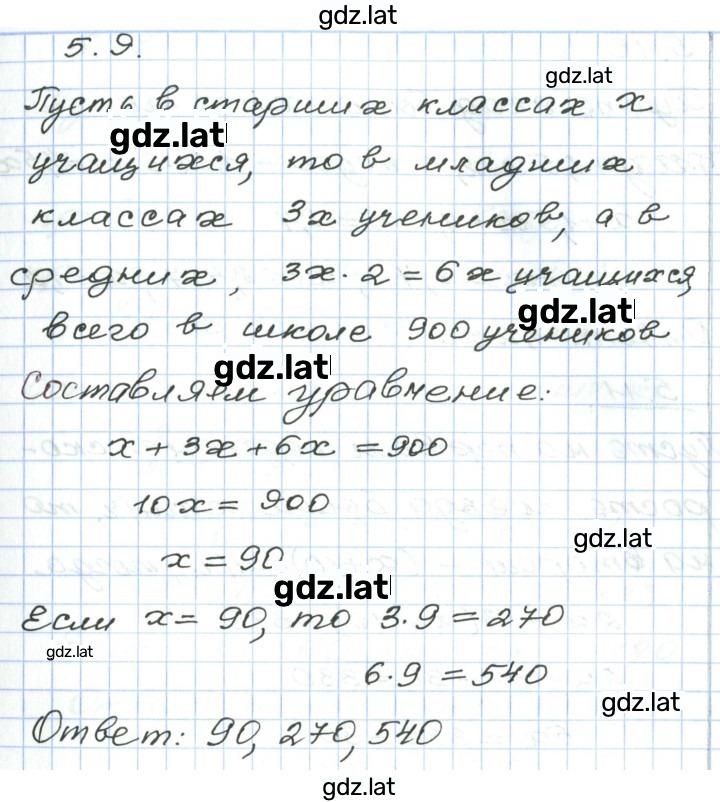 gdz.lat
5.9.
gdz.lat
Пусть в старших классах x
gdz.lat
учащихся, то в младших
классах 3x учеников, а в
средних, 3x · 2 = 6x учащихся,
gdz.lat
всего в школе 900 учеников
gdz.lat
Составляем уравнение:
x + 3x + 6x = 900
10x = 900
gdz.lat
x = 90
gdz.lat
Если x = 90, то 3·9 = 270
gdz.lat
6·9 = 540
gdz.lat
Ответ: 90, 270, 540
gdz.lat